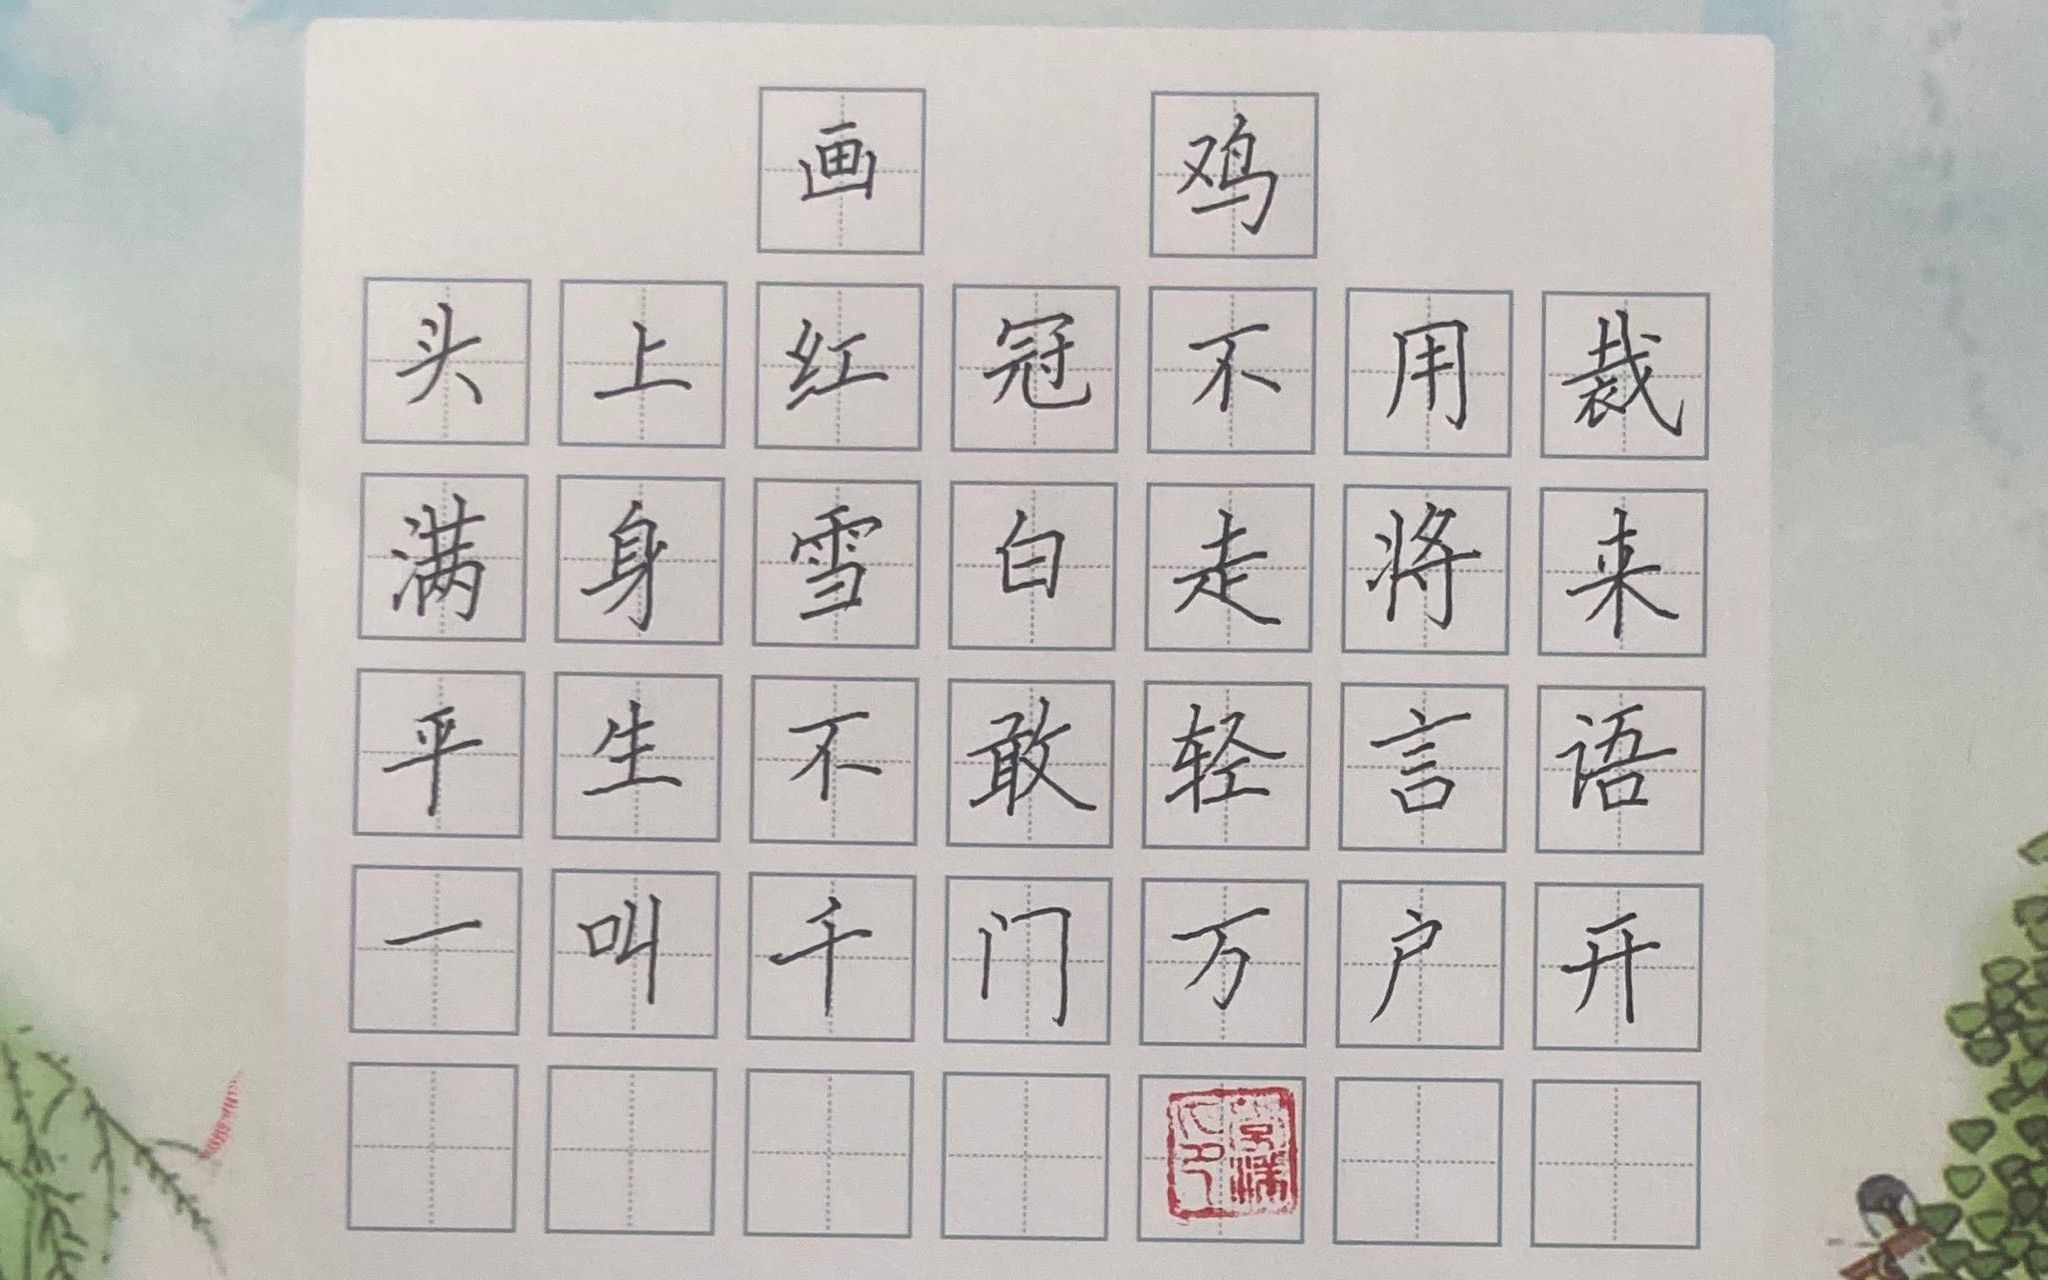 画鸡
头上红冠不用裁
满身雪白走将来
平生不敢轻言语
一叫千门万户开